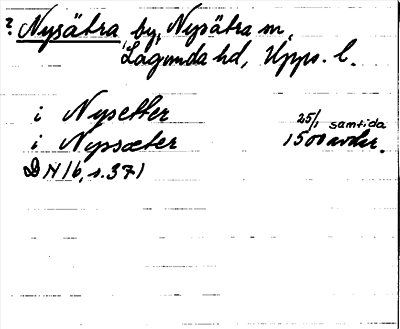 ? Nysätra by, Nysätra sn,
Lagunda hd, Upps. l.
i Nysetter
i Nyssæter 25/1 samtida
1500 avskr.
DN 16, s. 371